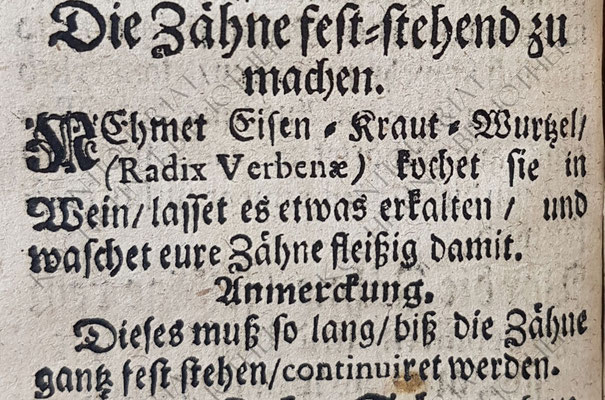 Die Zähne fest-stehend zu
machen.
NEhmet Eisen-Kraut-Wurtzel/
(Radix Verbenæ) kochet sie in
Wein/ lasset es etwas erkalten/ und
waschet eure Zähne fleißig damit.
Anmerckung.
Dieses muß so lang/ biß die Zähne
gantz fest stehen/ continuiret werden.